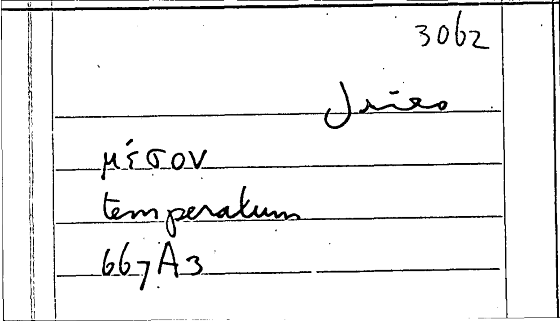 3062
μέσον
temperatum
667A3